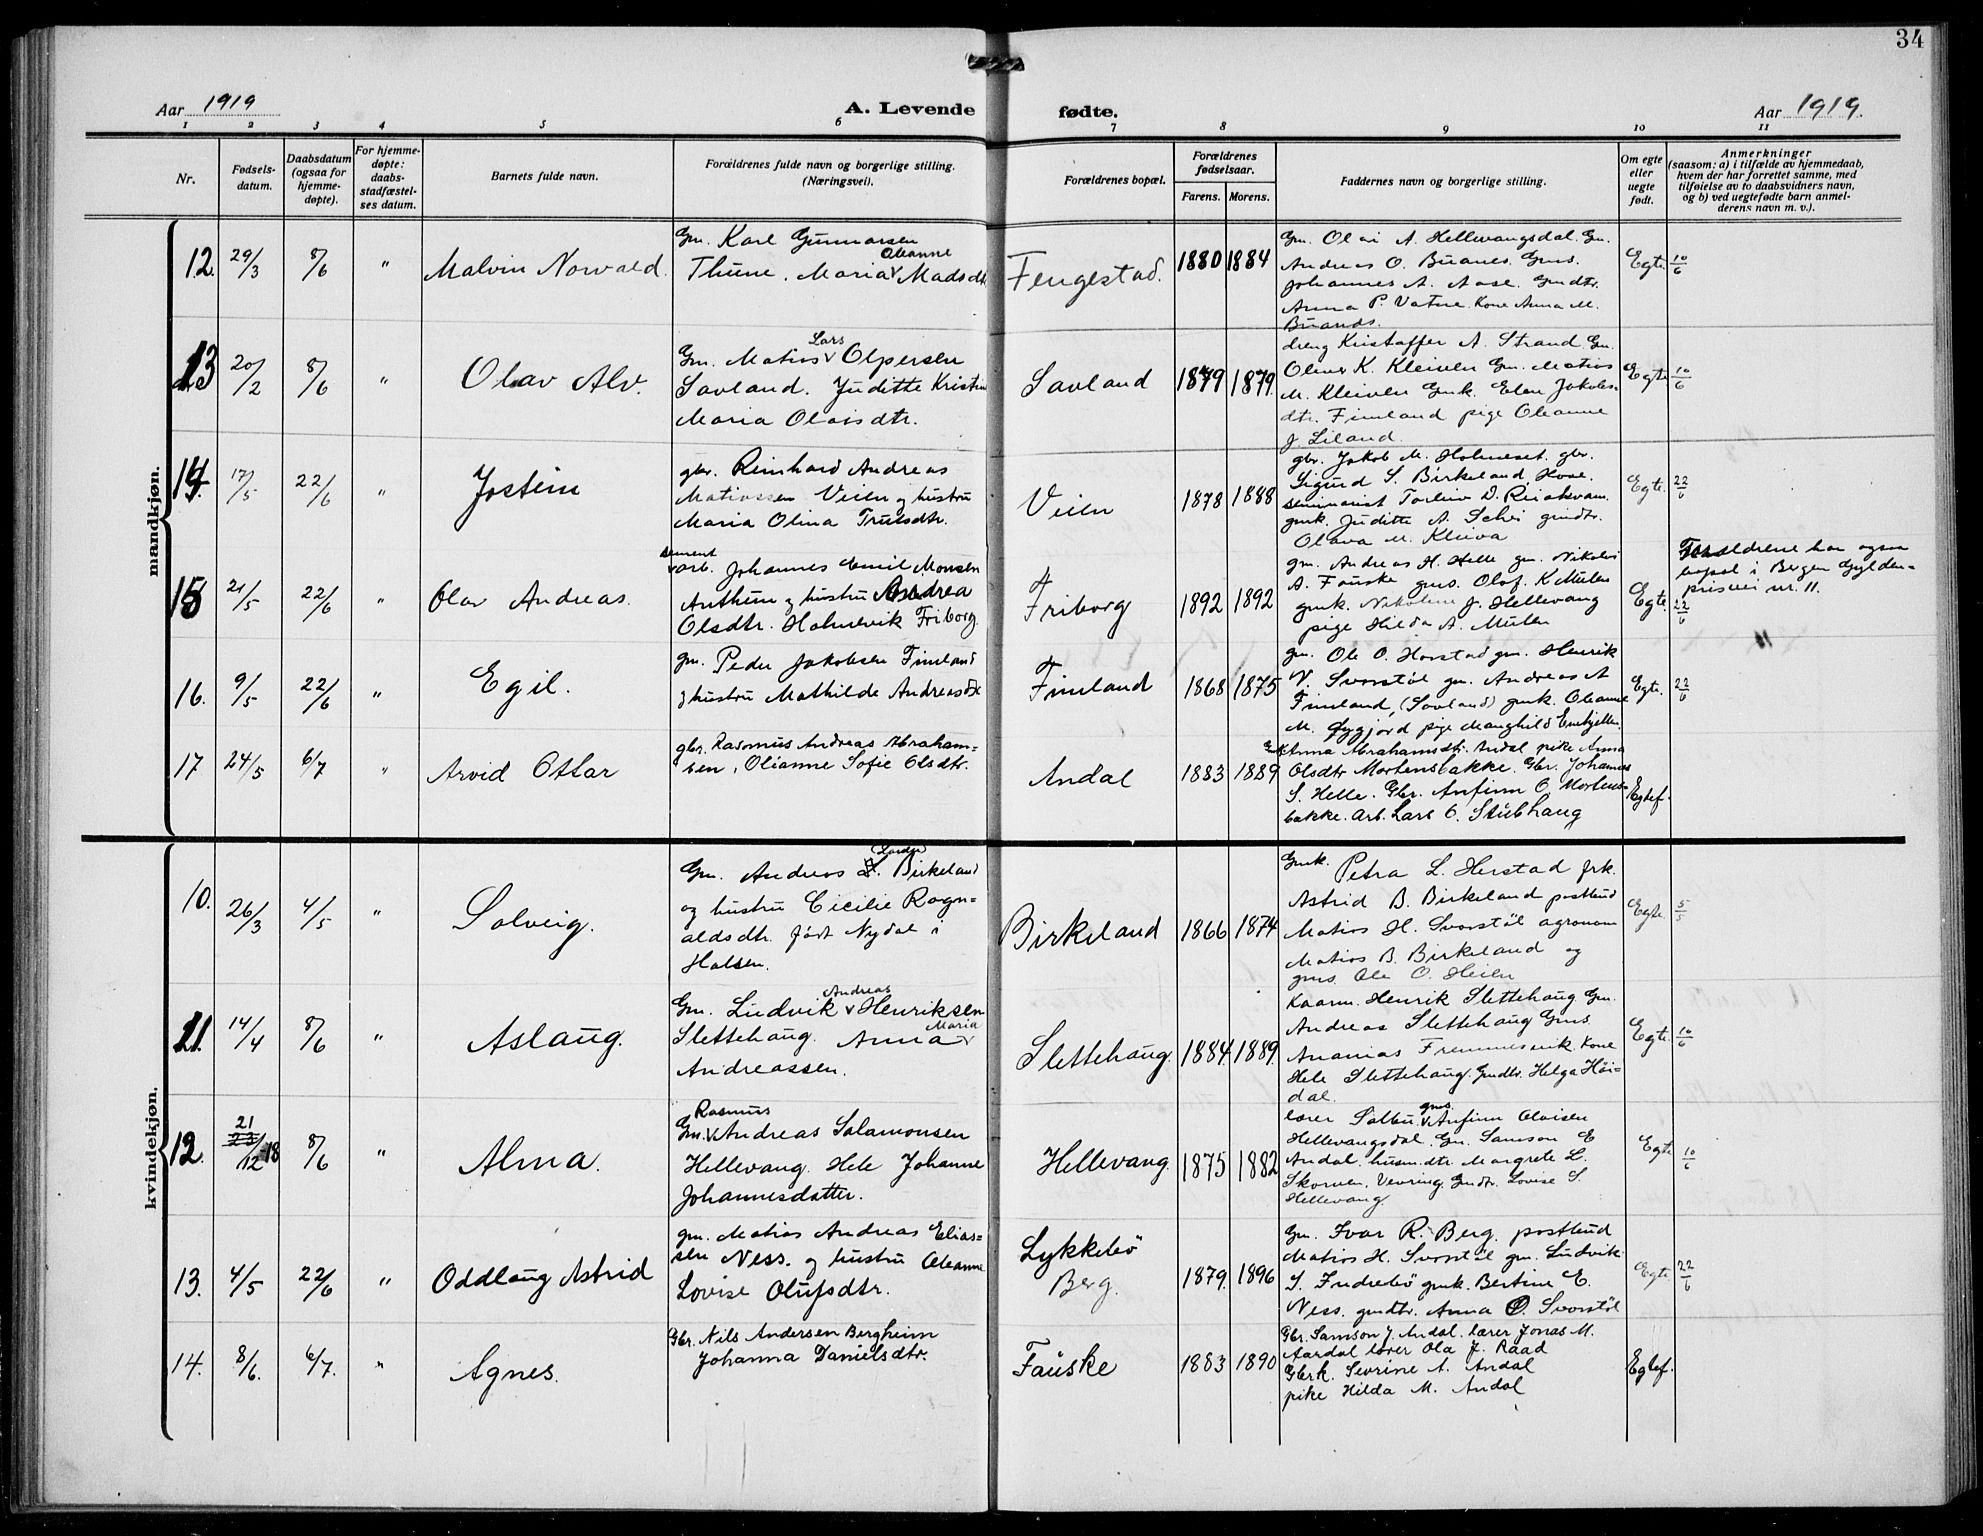 34
Aar 1919
A. Levende fødte.
Aar 1919.
1 2 3 4 5 6 7 8 9 10 11
Nr.
Fødsels-
datum.
Daabsdatum
(ogsaa for
hjemme-
døpte).
For hjemme-
døpte:
daabs-
stadfæstel-
ses datum.
Barnets fulde navn.
Forældrenes fulde navn og borgerlige stilling.
(Næringsvei).
Forældrenes bopæl.
Forældrenes
fødselsaar.
Farens. Morens.
Faddernes navn og borgerlige stilling.
Om egte
eller
uegte
født.
Anmerkninger
(saasom: a) i tilfælde av hjemmedaab,
hvem der har forrettet samme, med
tilføielse av to daabsvidners navn,
og b) ved uegtefødte barn anmel-
derens navn m. v.).
mandkjøn.
12. 29/3 8/6 " Malvin Norvald.
Gm. Karl Gunnarsen
Oleanne
Thune. Maria v Madsdtr.
Fengestad. 1880 1884
Gm. Olai A. Hellevangsdal. Gm.
Andreas O. Buanes. Gms.
Johannes A. Aase. Gmdtr.
Anna P. Vatne. Kone Anna M.
Buands.
Egte. 10/6
13 20/2 8/6 " Olav Alv.
Lars
Gm. Matias v Olpersen
Savland. Juditte Kristine
Maria Olaisdtr.
Savland 1879 1879.
dreng Kristaffer A. Strand Gm.
Oliver K. Kleiven Gm. Matias
M. Kleiven Gmk. Elen Jakobs-
dtr. Fimland pige Oleanne
J. Liland.
Egte 10/6
14. 17/5 22/6 " Jostein
gbr. Reinhard Andreas
Matiassen Veien og hustru
Maria Olina Trulsdtr.
Veien 1878 1888
gbr. Jakob M. Holmeset. gbr.
Sigurd S. Birkeland, Hove.
seminarist Torleiv D.
gmk. Juditte A. gmdtr.
Olava M. Kleiva
Egte. 22/6
15 21/5 22/6 " Olav Andreas.
sement
v arb. Johannes Emil Monsen
Anthun og hustru Andrea
Olsdtr. Holmevik Friborg.
Friborg 1892 1892
gm. Andreas H. Helle gm. Nikolai
A. Fauske gms. Olaf K Mulen
gmk. Nikoline J. Hellevang
pige Hilda A. Mulen
Egte. 22/6
Forældrene har ogsaa
bopæl i Bergen Gylden-
prisvei nr. 11.
16. 9/5 22/6 " Egil.
gm. Peder Jakobsen Fimland
og hustru Mathilde Andreasdtr
Fimland 1868 1875
gm. Ole O. Horstad gm. Henrik
N. Svorstøl gm. Andreas A
Fimland, (Savland) gmk. Oleanne
M. Øygjord pige Manghild
Egte. 22/6
17 24/5 6/7 " Arvid Ottar
gbr. Rasmus Andreas Abraham-
sen, Olianne Sofie Olsdtr.
Andal 1883 1889
Anna Abrahamsdtr. Andal pike Anna
Olsdtr Mortensbakke. Gbr. Johannes
S. Helle. Gbr. Anfinn O. Mortens-
bakke. Arb. Lars O. Stubhaug
Egtef.
kvindekjøn.
10. 26/3 4/5 " Solveig.
Gm. Andreas Birkeland
og hustru Cicilie Rogn-
aldsdtr. født Nydal i
Halsen.
Birkeland 1866 1874
Gmk. Petra L. Herstad frk.
Astrid B. Birkeland postbud
Matias H. Svorstöl agronom
Matias B. Birkeland og
gms. Ole O. Heilen
Egte. 5/5
11. 14/4 8/6 " Aslaug.
Andreas
Gm. Ludvik v Henriksen
Slettehaug. Anna v Maria
Andreassen.
Slettehaug. 1884. 1889.
Kaarm. Henrik Slettehaug Gm.
Andreas Slettehaug Gms.
Ananias Fremmesvik. Kone
Hele Slettehaug. Gmdtr. Helga Höi-
dal.
Egte. 10/6
12. 21/12-18 8/6 " Alma.
Rasmus
Gm. v Andreas Salamonsen
Hellevang. Hele Johanne
Johannesdatter.
Hellevang. 1875 1882
lærer Solbu. gms. v Anfinn Olaisen
Hellevangsdal. Gm. Samson E
Andal. husmdtr. Margrete L.
Skorven, Vevring. Gmdtr. Lovise S.
Hellevang.
Egte 10/6
13. 4/5 22/6 " Oddlaug Astrid
gm. Matias Andreas Elias-
sen Ness. og hustru Oleanne
Lovise Olufsdtr.
Lykkebö
Berg. 1879. 1896
Gm. Ivar R. Berg. postbud
Matias H. Svorstöl gm. Ludvik
S. Indrebö gmk. Bertine E.
Ness. gmdtr. Anna O. Svorstöl
Egte. 22/6
14. 8/6. 6/7. " Agnes.
Gbr. Nils Andersen Bergheim
Johanna Danielsdtr.
Fauske 1883 1890
Gbr. Samson J. Andal. lærer Jonas M.
Aardal lærer Ola J. Raad
Gbrk. Sevrine A. Andal
pike Hilda M. Andal
Egtef.